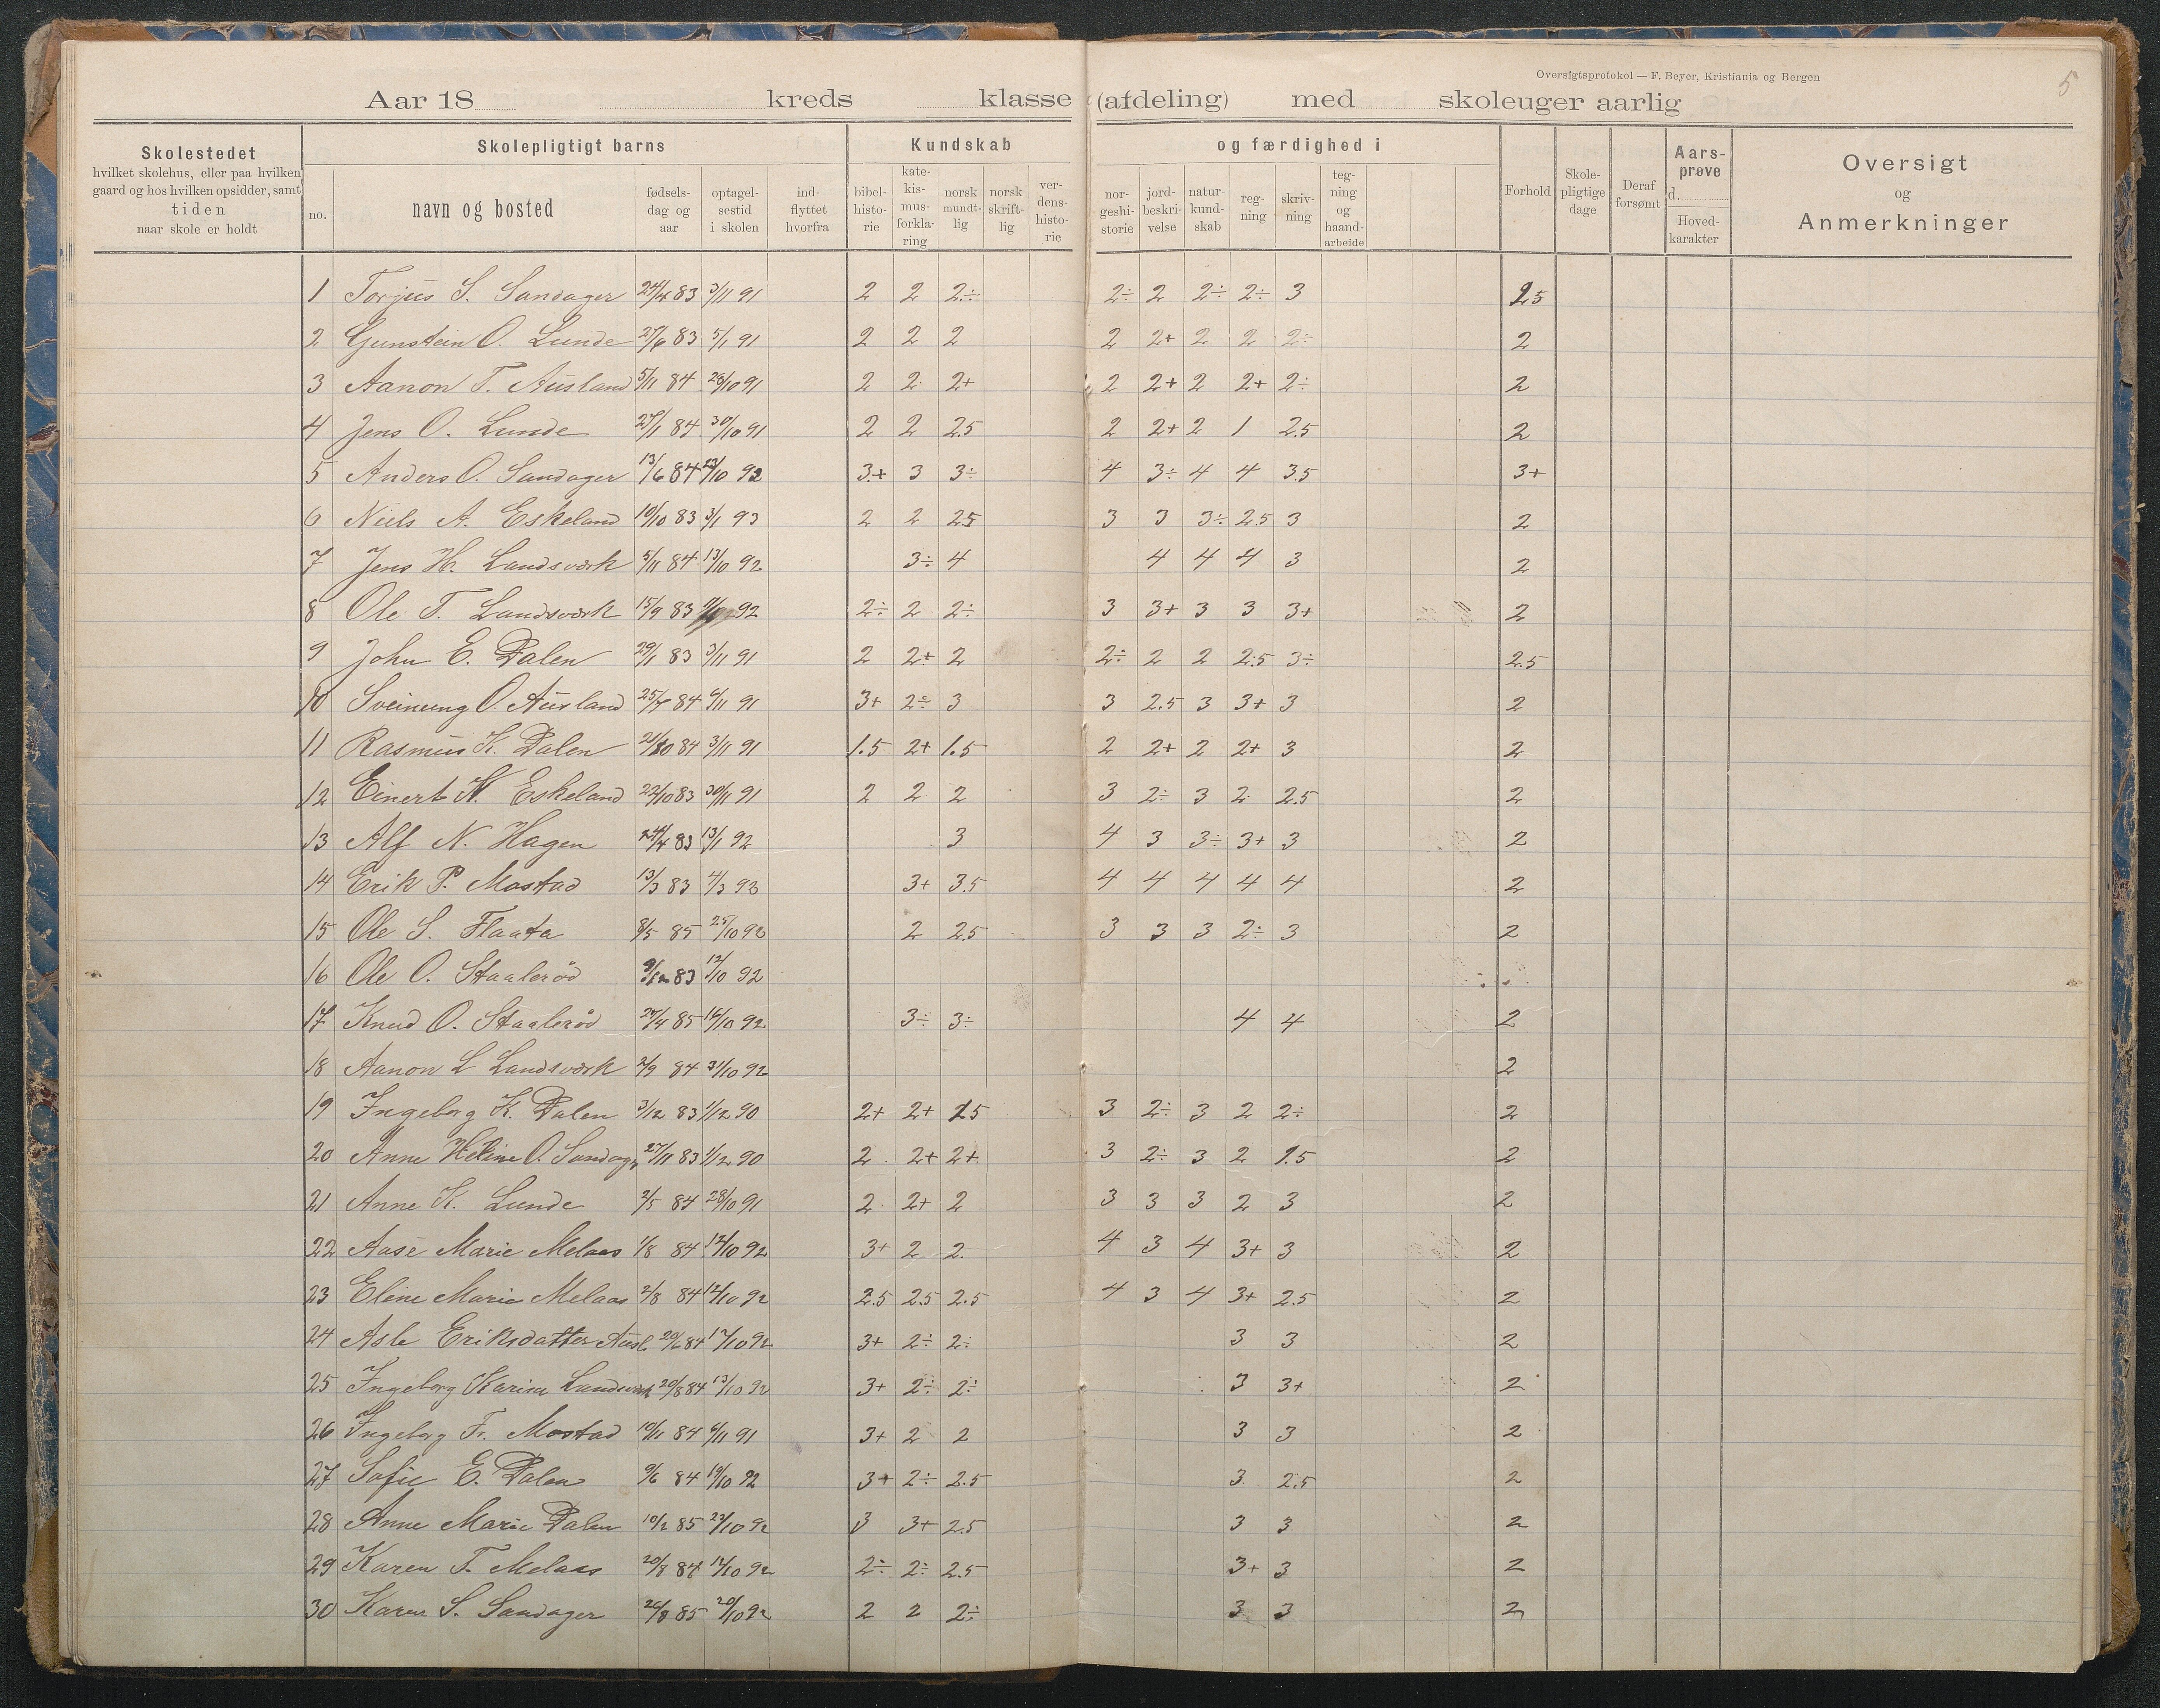 Oversigtsprotokol — F. Beyer, Kristiania og Bergen
5
Aar 18 kreds klasse (afdeling) med skoleuger aarlig
Skolestedet
hvilket skolehus, eller paa hvilken
gaard og hos hvilken opsidder, samt
tiden
naar skole er holdt
Skolepligtigt barns
no.
navn og bosted
fødsels-
dag og
aar
optagel-
sestid
i skolen
ind-
flyttet
hvorfra
Kundskab
bibel-
histo-
rie
kate-
kis-
mus-
forkla-
ring
norsk
mundt-
lig
norsk
skrift-
lig
ver-
dens-
histo-
rie
og færdighed i
nor-
geshi-
storie
jord-
beskri-
velse
natur-
kund-
skab
reg-
ning
skriv-
ning
teg-
ning
og
haand-
arbeide
Forhold
Skole-
pligtige
dage
Deraf
forsømt
Aars-
prøve
d.
Hoved-
karakter
Oversigt
og
Anmerkninger
1 Torjus S. Sandager 24/4 83 3/11 91 2 2 2÷ 2÷ 2 2÷ 2÷ 3 2.5
2 Gunstein O. Lunde 27/6 83 5/1 91 2 2 2 2 2+ 2 2 2÷ 2
3 Aanon T. Ausland 5/11 84 28/10 91 2 2 2+ 2 2+ 2 2+ 2÷ 2
4 Jens O. Lunde 27/1 84 30/10 91 2 2 2.5 2 2+ 2 1 2.5 2
5 Anders O. Sandager 13/6 84 /10 92 3+ 3 3÷ 4 3÷ 4 4 3.5 3+
6 Niels A. Eskeland 10/10 83 3/1 93 2 2 2.5 3 3 3÷ 2.5 3 2
7 Jens H. Landsværk 5/11 84 13/10 92 3÷ 4 4 4 4 3 2
8 Ole T. Landsværk 15/9 83 92 2÷ 2 2÷ 3 3+ 3 3 3+ 2
9 John E. Dalen 29/1 83 3/11 91 2 2+ 2 2÷ 2 2 2.5 3÷ 2.5
10 Sveinung O. Ausland 25/7 84 6/11 91 3+ 2÷ 3 3 2.5 3 3+ 3 2
11 Rasmus K. Dalen 84 3/11 91 1.5 2+ 1.5 2 2+ 2 2+ 3 2
12 Einert N. Eskeland 22/10 83 30/11 91 2 2 2 3 2÷ 3 2 2.5 2
13 Alf N. Hagen 24/4 83 13/1 92 3 4 3 3÷ 3+ 3 2
14 Erik P. Mostad 13/3 83 4/3 93 3+ 3.5 4 4 4 4 4 2
15 Ole S. Flaata 8/5 85 25/10 92 2 2.5 3 3 3 2÷ 3 2
16 Ole O. Staalerød 83 12/10 92
17 Knud O. Staalerød 24/4 85 14/10 92 3÷ 3÷ 4 4 2
18 Aanon L Landsværk 2/9 84 31/10 92 2
19 Ingeborg K. Dalen 3/12 83 1/12 90 2+ 2+ 1.5 3 2÷ 3 2 2÷ 2
20 Anne Heline O. Sandager 27/11 83 1/12 90 2 2+ 2+ 3 2÷ 3 2 1.5 2
21 Anne K. Lunde 2/5 84 28/10 91 2 2+ 2 3 3 3 2 3 2
22 Aase Marie Melaas 1/8 84 12/10 92 3+ 2 2 4 3 4 3+ 3 2
23 Eline Marie Melaas 2/8 84 12/10 92 2.5 2.5 2.5 4 3 4 3+ 2.5 2
24 Asle Eriksdatter Ausl. 20/6 84 17/10 92 3+ 2÷ 2÷ 3 3 2
25 Ingeborg Karine Landsværk 20/8 84 13/10 92 3+ 2÷ 2÷ 3 3+ 2
26 Ingeborg Fr. Mostad 10/11 84 6/11 91 3+ 2 2 3 3 2
27 Sofie E. Dalen 9/6 84 19/10 92 3+ 2÷ 2.5 3 2.5 2
28 Anne Marie Dalen 10/2 85 22/10 92 3 3+ 2.5 3 3 2
29 Karen T. Melaas 20/8 84 12/10 92 2÷ 2÷ 2.5 3+ 3 2
30 Karen S. Sandager 26/8 85 20/10 92 2 2 2÷ 3 3 2